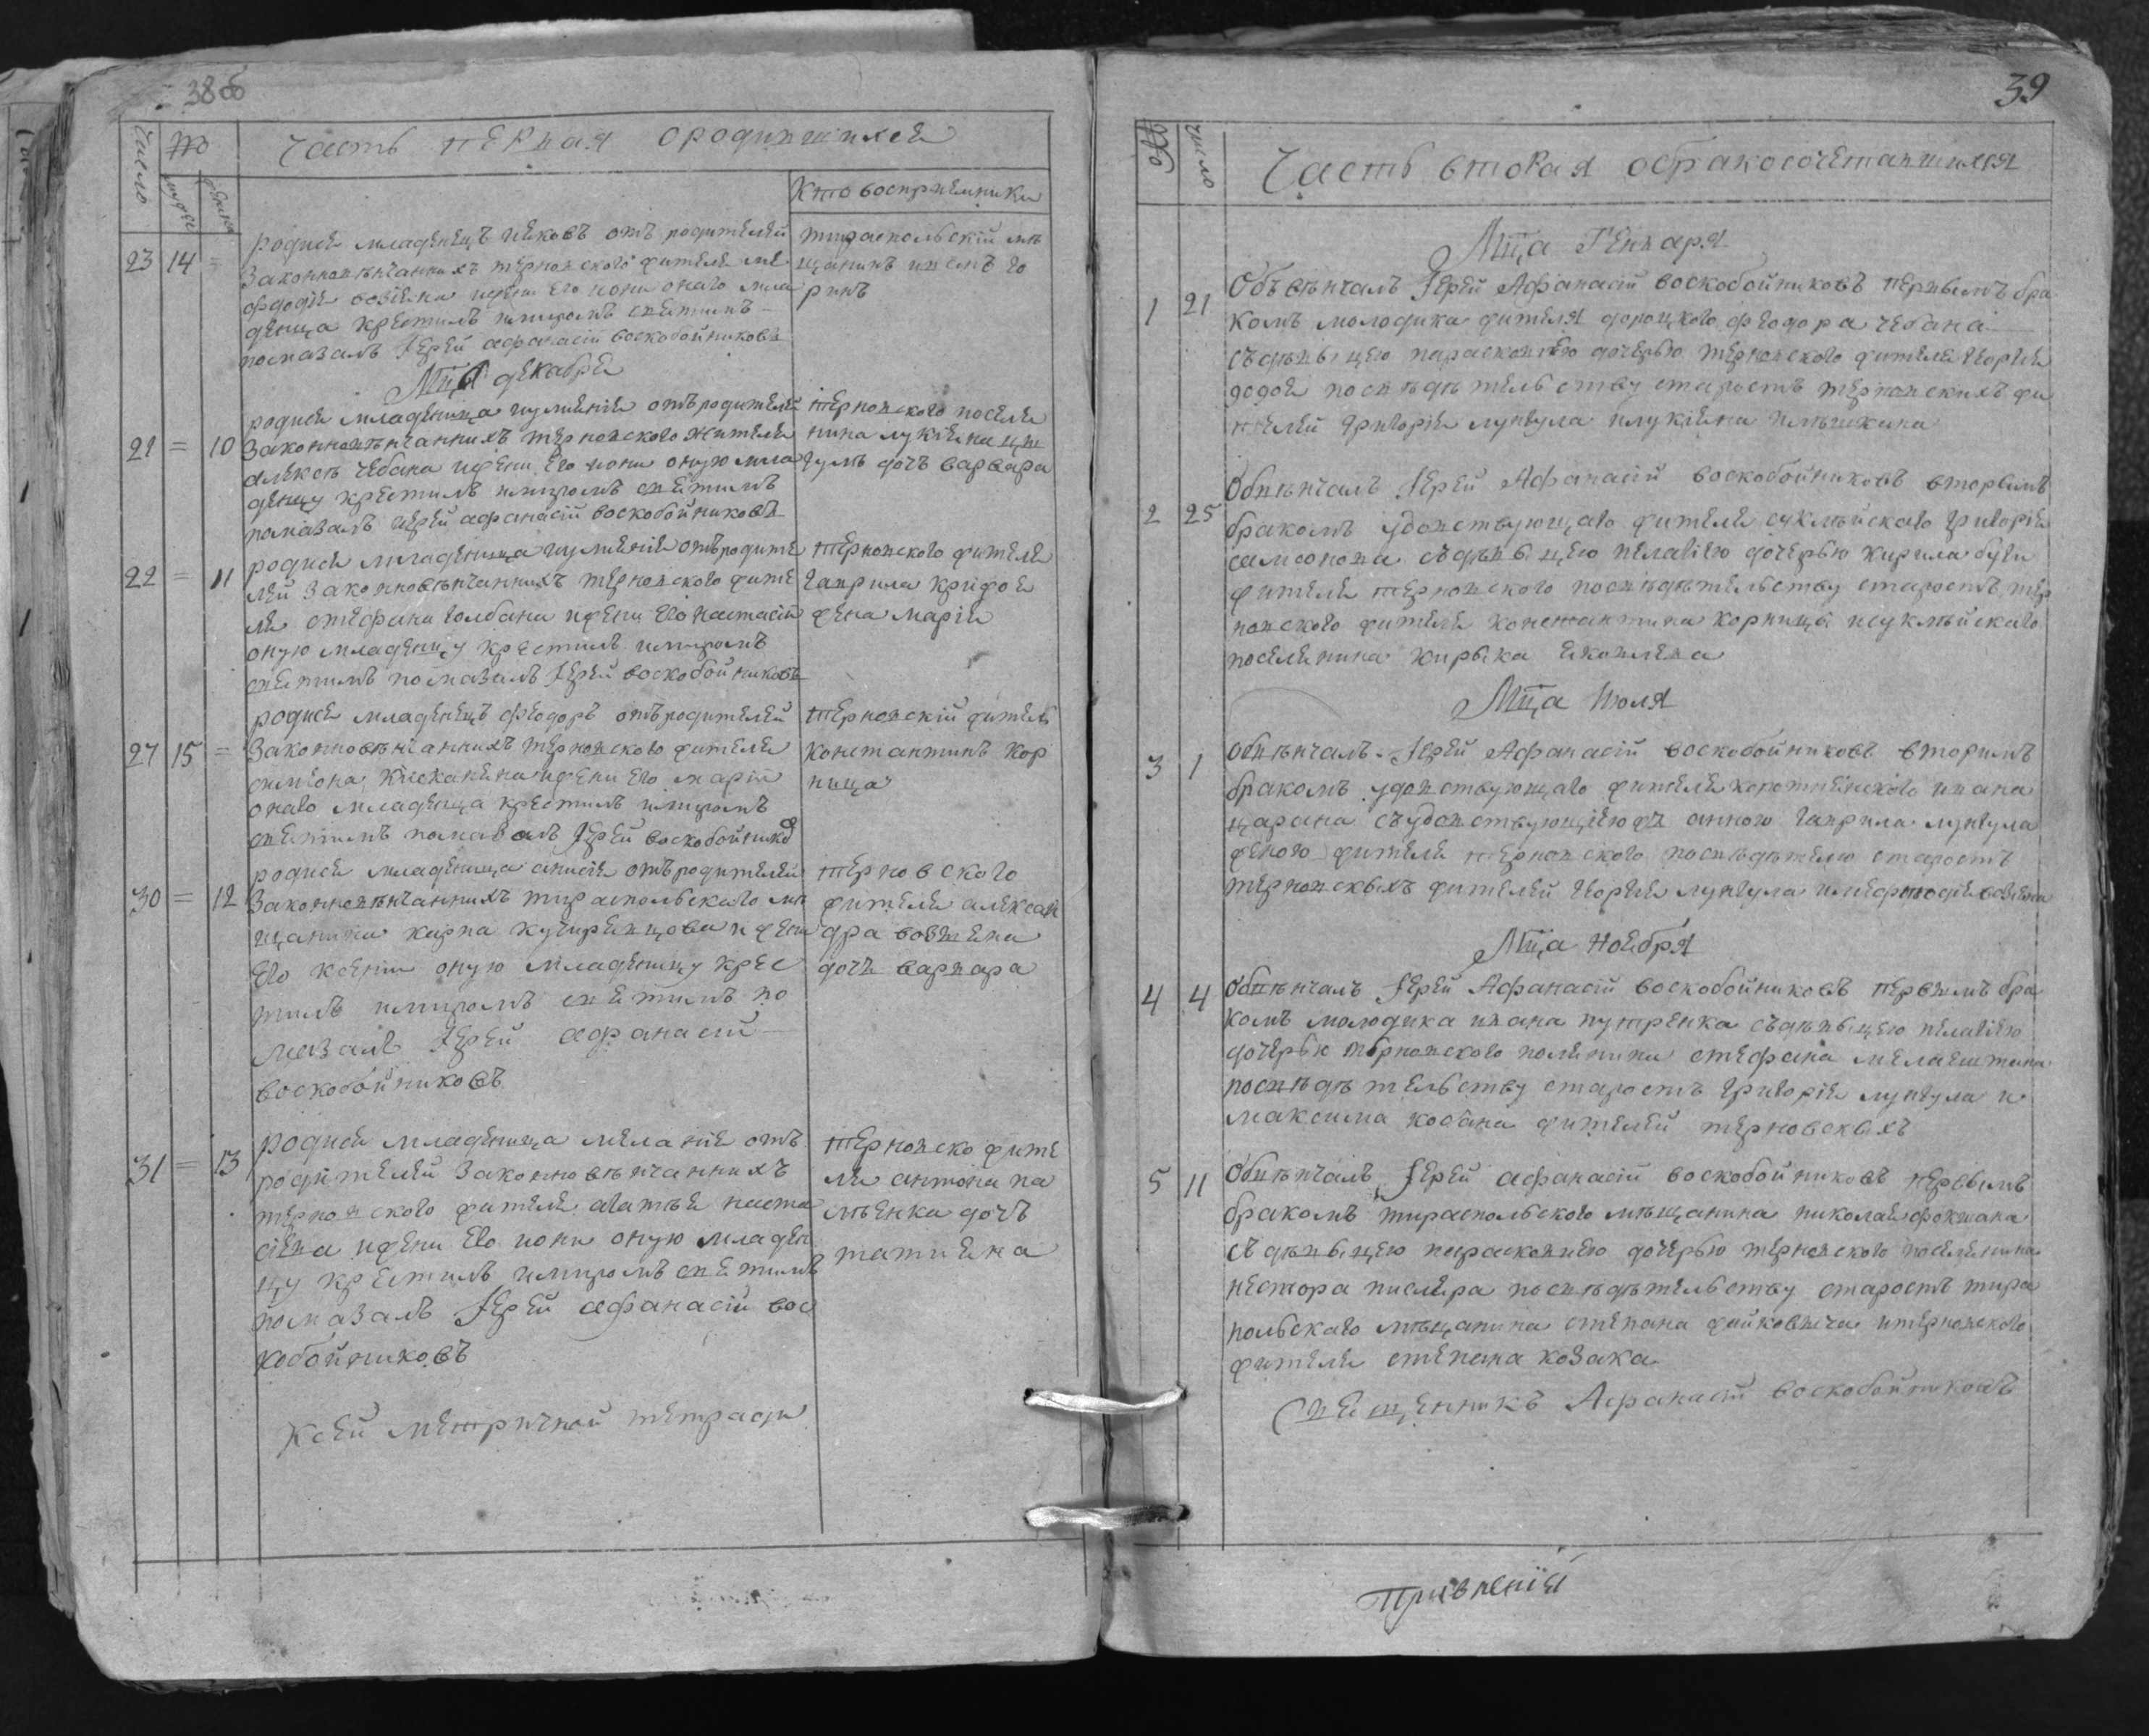 38об
Число
№
мужеск
женск
Часть первая о родившихся
Кто восприемники
23 14 =
родися младенецъ иаковъ отъ родителей
законновѣнчанныхъ терновского жителя ме
фодія возіяна и жены его ионы онаго мла
денца крестилъ и миромъ святымъ
помазалъ Іерей афанасій воскобойниковъ
тираспольскій мѣ
щанинъ
ринъ
Мца декабря
21 = 10
родися младеница иулианія отъ родителей
законновѣнчанныхъ терновского жителя
алексѣя чебана и жены его ионы оную мла
деницу крестилъ и миромъ святымъ
помазалъ иерей афанасій воскобойниковъ
терновского поселя
нина лукіяна
гулъ дочь варвара
22 = 11
родися младеница иулианія отъ родите
лей законновѣнчанныхъ терновского жите
ля стефана голбана и жены его настасіи
оную младеницу крестилъ и миромъ
святымъ помазалъ Іерей воскобойниковъ
терновского жителя
гаврила крифоя
жена марія
27 15 =
родися младенецъ феодоръ отъ родителей
законновѣнчанныхъ терновского жителя
симиона кисканяна и жены его маріи
онаго младенца крестилъ и миромъ
святымъ помазалъ Іерей воскобойниковъ
терновскій житель
константинъ кор
ница
30 = 12
родися младеница анисія отъ родителей
законновѣнчанныхъ тираспольского мѣ
щанина карпа кучеренцова и жены
его ксении оную младеницу крес
тилъ и миромъ святымъ по
мазалъ Іерей афанасій
воскобойниковъ
терновского
жителя алексан
дра возияна
дочь варвара
31 = 13
родися младеница меланія отъ
родителей законновѣнчанныхъ
терновского жителя агатъя наста
сіева и жены его ионы оную младен
цу крестилъ и миромъ святымъ
помазалъ Іерей афанасій вос
кобойниковъ
терновско жите
ля антона па
мѣенка дочь
татияна
К сей метричной тетради
39
№
число
Часть вторая о бракосочетавшихся
Мца Генваря
1 21
Объвѣнчалъ Іерей Афанасій воскобойниковъ первымъ бра
комъ молодика жителя дороцкого феодора чебана
съ дѣвыцею парасковією дочерью терновского жителя георгія
додоя по свѣдѣтельству старостъ терновскихъ жи
телей григорія лунгула и лукіяна
2 25
Обвѣнчалъ Іерей Афанасій воскобойниковъ вторымъ
бракомъ удовствующаго жителя суклѣйскаго григорія
самсонова съ дѣвыцею пелагією дочерью кирила буги
жителя терновского по свѣдѣтельству старостъ тер
новского жителя константина корницы и суклѣйскаго
поселянина кирыка яковлева
Мца июля
3 1
обвѣнчалъ Іерей Афанасій воскобойниковъ вторимъ
бракомъ удовствующаго жителя коротнянского ивана
царана съ удовствующією анною гаврила лунгула
женою жителя терновского по свѣдѣтелю старостъ
терновскыхъ жителей георгія лунгула и мефтодія возіяна
Мца ноября
4 4
Обвѣнчалъ Іерей Афанасій воскобойниковъ первымъ бра
комъ молодика ивана путренка съ дѣвыцею пелагією
дочерью терновского поселянина стефана мелаештяна
по свѣдѣтельству старостъ григорія лунгула и
максима косана жителей терновскыхъ
5 11
Обвѣнчалъ Іерей афанасій воскобойниковъ первымъ
бракомъ тираспольского мѣщанина николая фокшана
съ дѣвыцею парасковиею дочерью терновского поселянина
нестора писляра по свѣдѣтельству старостъ тира
польскаго мѣщанина степана файковыча и терновского
жителя степана козака
Священникъ Афанасій воскобойниковъ